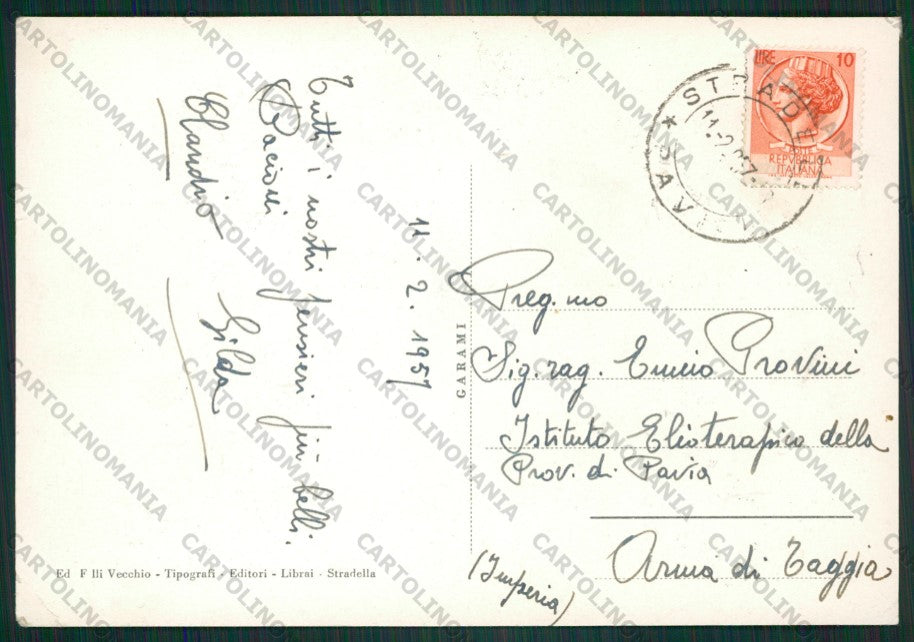 Tutti i nostri pensieri più belli.
Bacioni
Claudio
Gilda
11. 2. 1957
GARAMI
Ed F lli Vecchio - Tipografi - Editori - Librai - Stradella
LIRE 10
REPVBBLICA
ITALIANA
STRADE
11.-2.57.
PAV
Preg.mo
Sig. rag. Ennio Provini
Istituto Elioterapico della
Prov. di Pavia
Arma di Taggia
(Imperia)
CARTOLINOMANIA